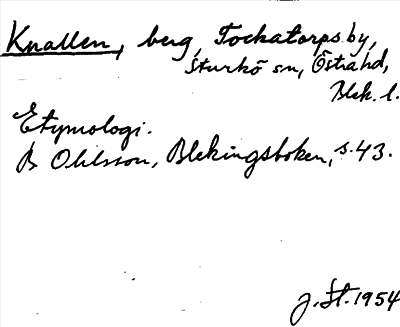 Knallen, berg, Tockatorps by,
Sturkö sn, Östra hd,
Blek. l.
Etymologi.
B Ohlsson, Blekingsboken, s. 43.
J. St. 1954